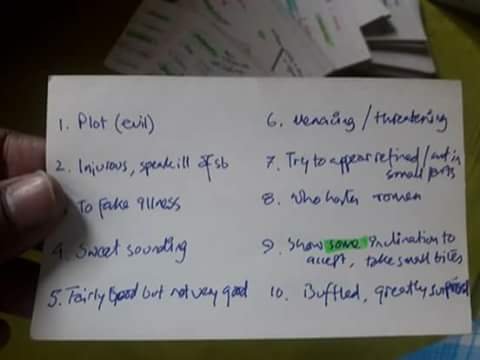 1. Plot (evil)
2. Injurous, speak ill of sb
To fake illness
4. Sweet sounding
5. Fairly good but not very good
6. Menacing / threatening
7. Try to appear refined / cut in
small parts
8. Who hates women
9. Show some inclination to
accept, take small bites
10. Buffled, greatly surprised